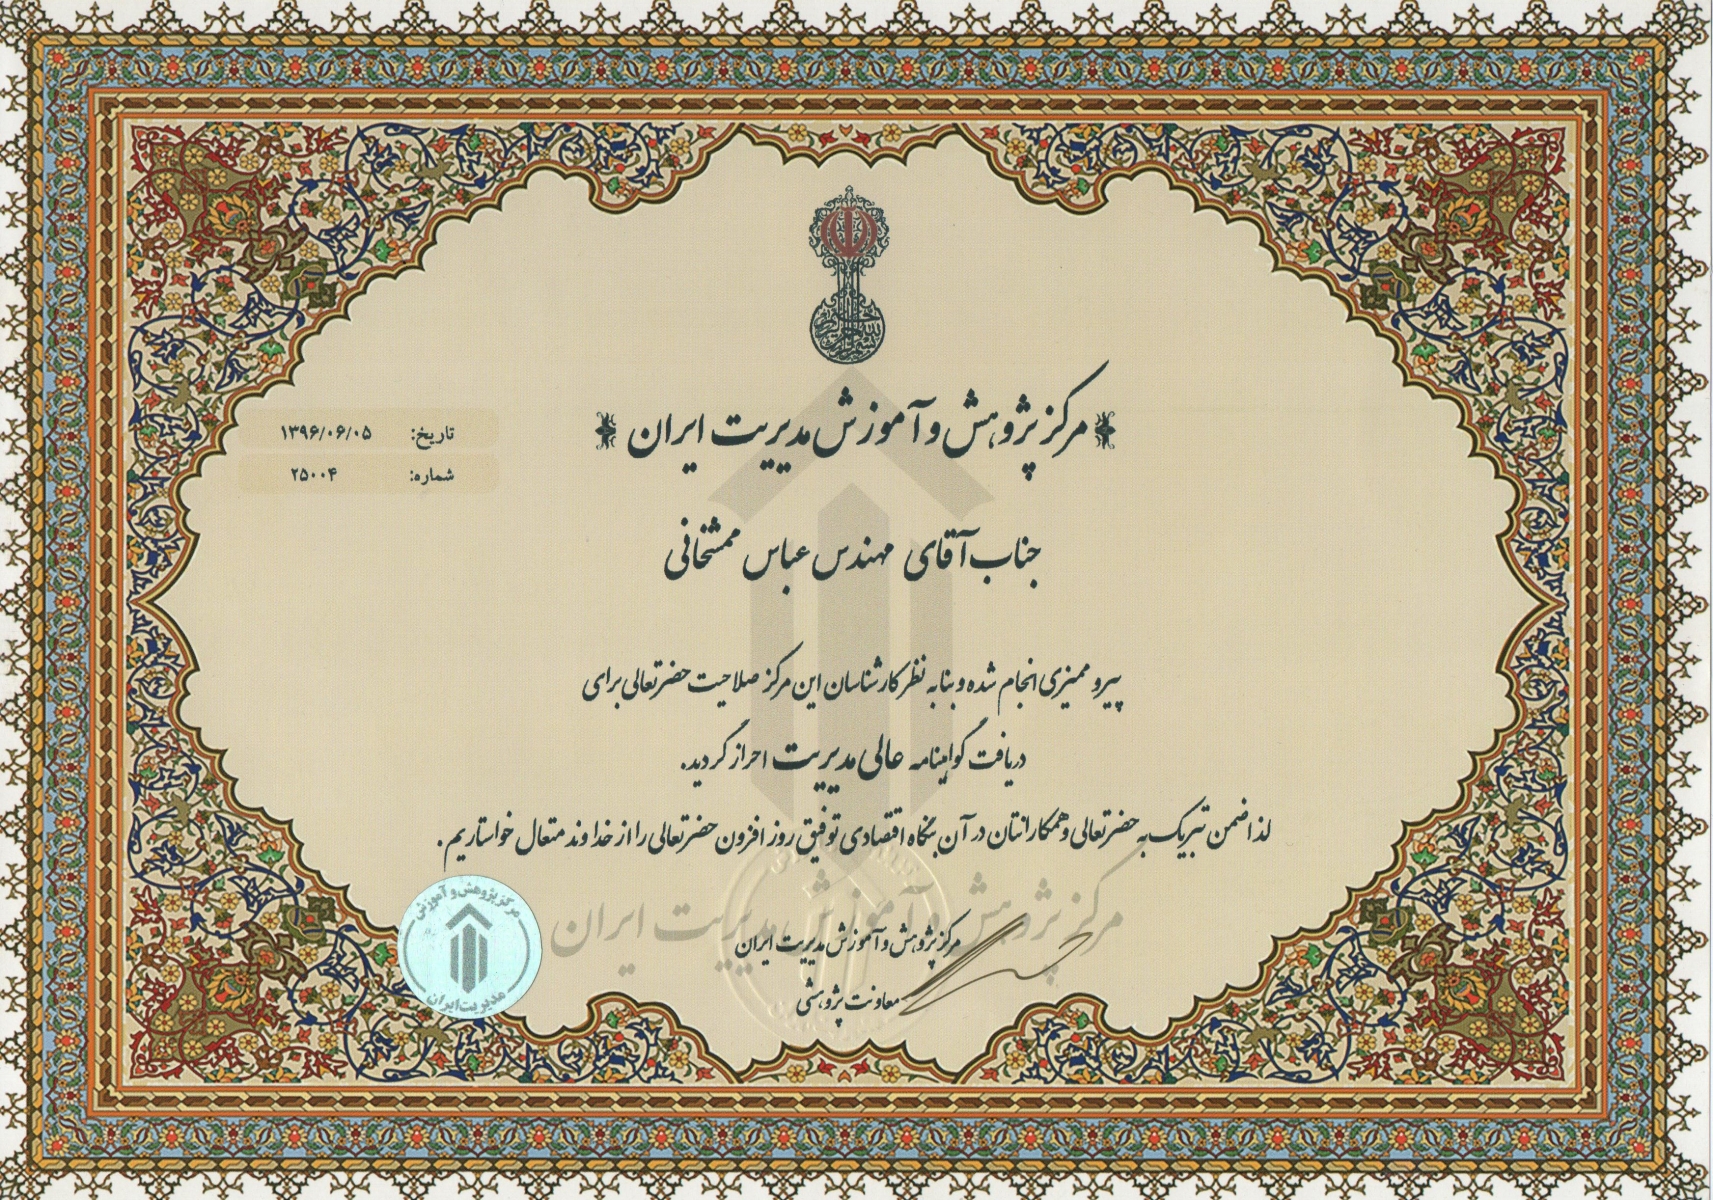 مرکز پژوهش و آموزش مدیریت ایران
تاریخ: ۱۳۹۶/۰۶/۰۵
شماره: ۲۵۰۰۴
جناب آقای مهندس عباس ممشخانی
پیرو ممیزی انجام شده و بنا به نظر کارشناسان این مرکز صلاحیت حضرتعالی برای
دریافت گواهینامه عالی مدیریت احراز گردید.
لذا ضمن تبریک به حضرتعالی و همکارانتان در آن بنگاه اقتصادی توفیق روز افزون حضرتعالی را از خداوند متعال خواستاریم.
مرکز پژوهش و آموزش مدیریت ایران
مرکز پژوهش و آموزش مدیریت ایران
معاونت پژوهشی
مرکز پژوهش و آموزش
مدیریت ایران